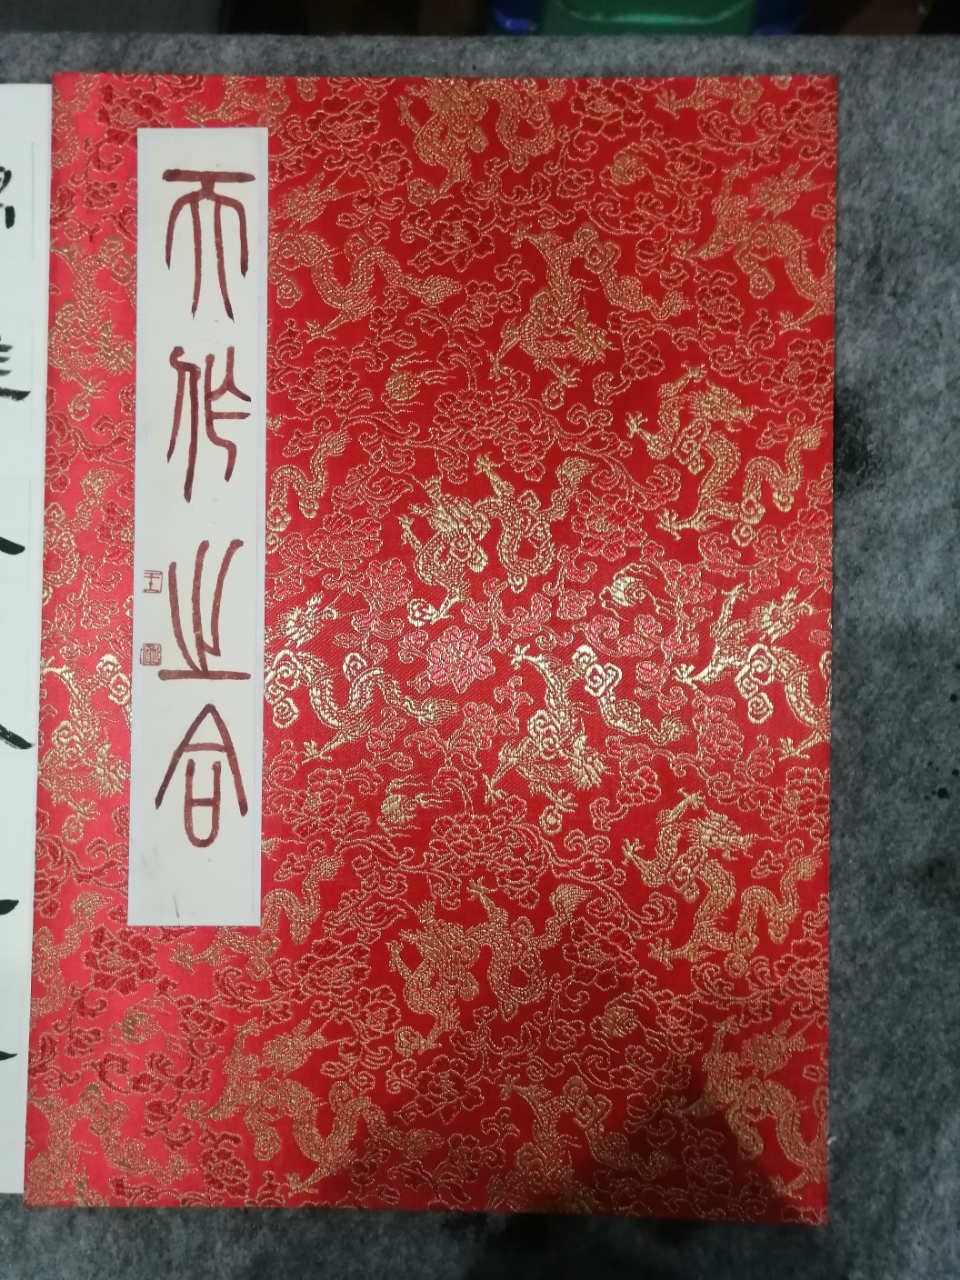 天作之合